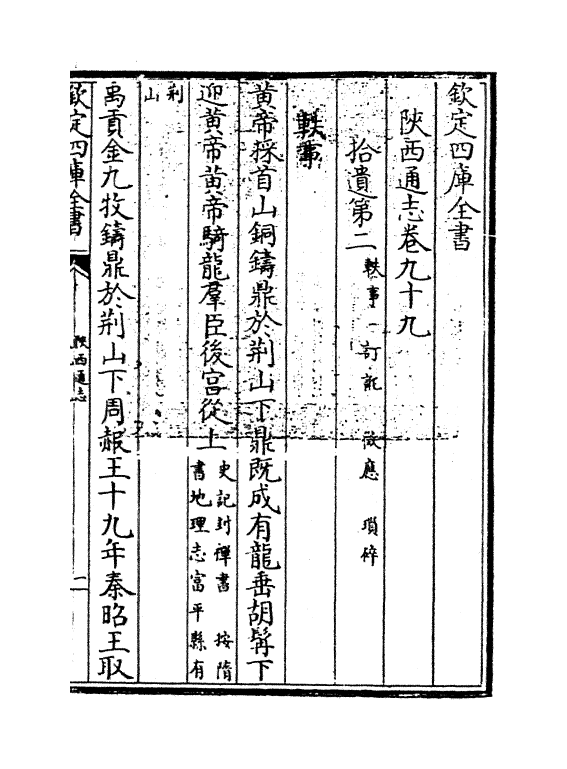 欽定四庫全書
陝西通志卷九十九
拾遺第二 軼事 訂訛 徵應 瑣碎
軼事
黄帝採首山銅鑄鼎於荆山下鼎既成有龍垂胡髯下
迎黄帝黄帝騎龍羣臣後宫從上 史記封禪書 按隋
書地理志富平縣有
荆
山
禹貢金九牧鑄鼎於荆山下周赧王十九年秦昭王取
欽定四庫全書
陜西通志